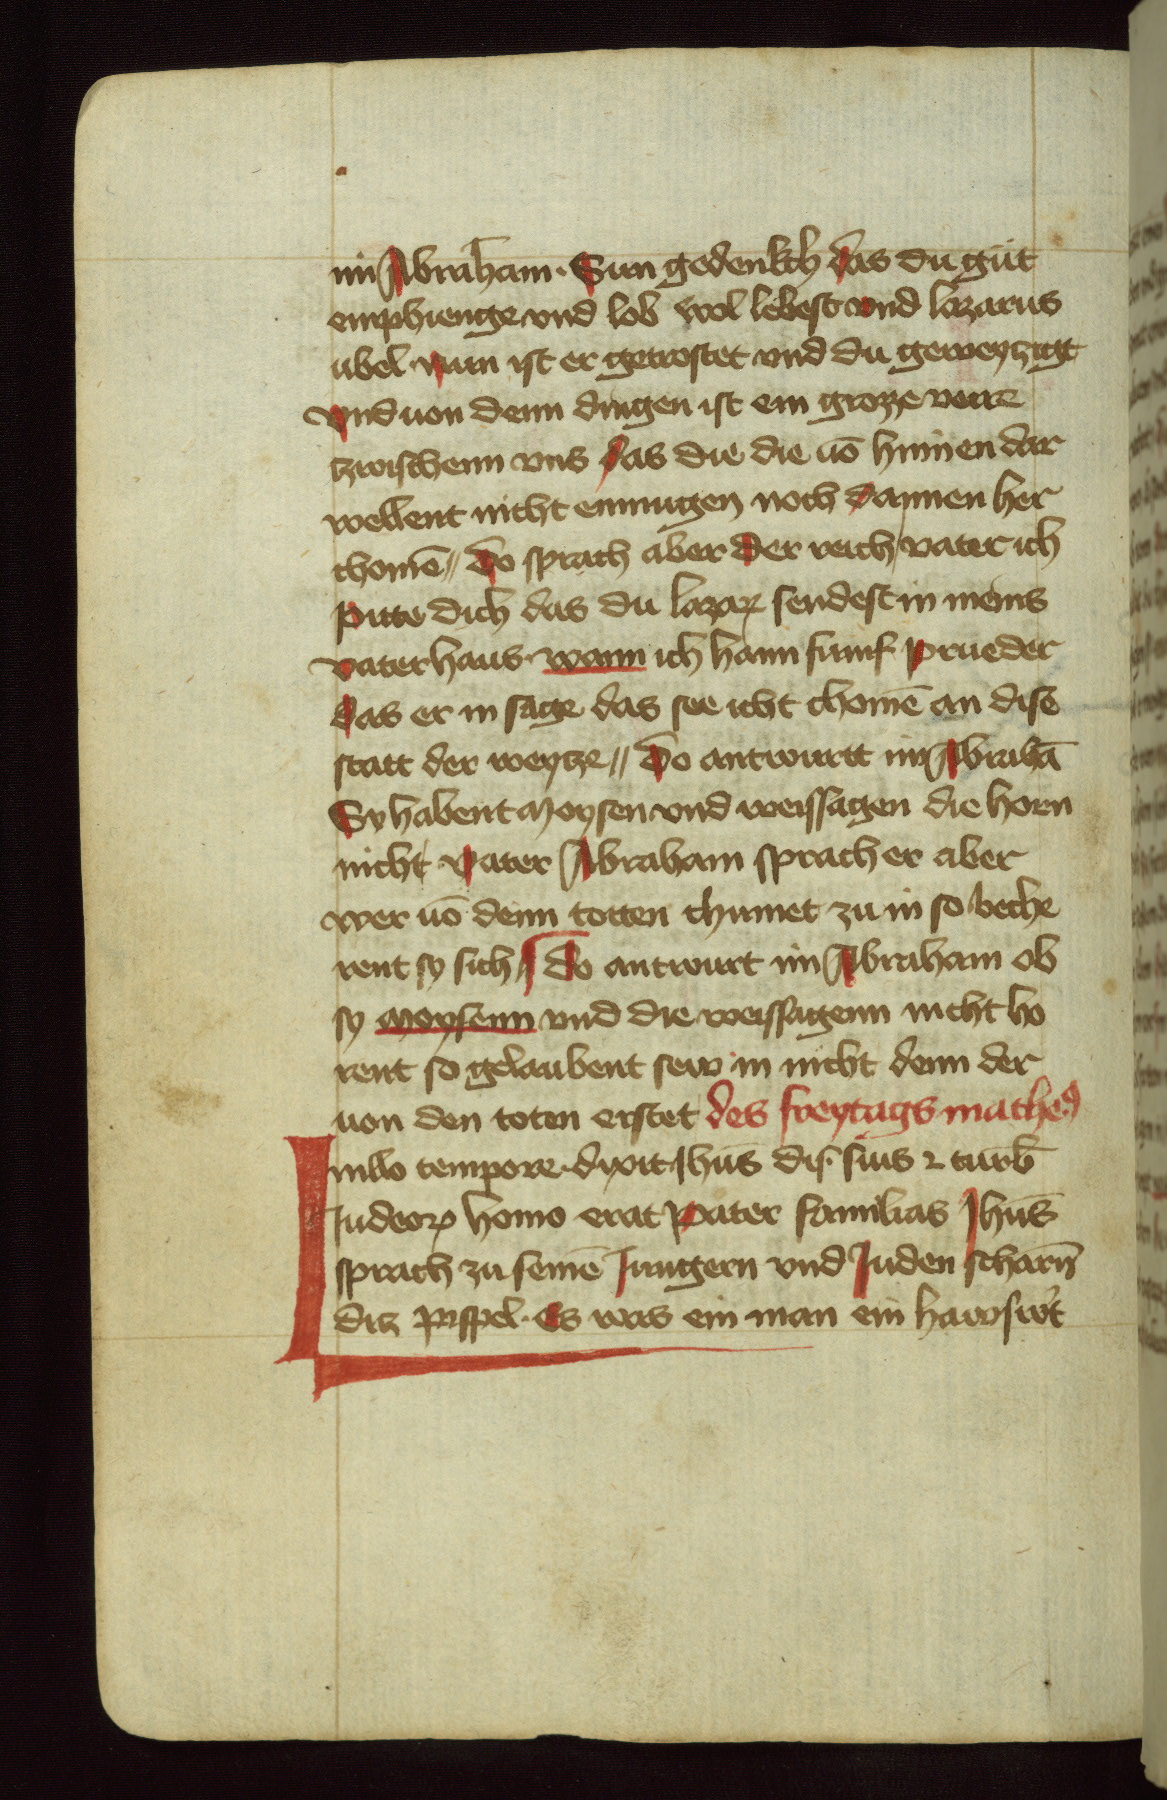 im Abraham · Sun gedenkch das du gut
emphienge vnd lob wol lebest vnd lazarus
ubel · nun ist er getrostet vnd du geweyzigt
vnd uon denn dingen ist ein grozze verre
tzwischenn vns das die die uō hinnen dar
wellent nicht enmugen noch dannen her
chomē // Do sprach aber der reich vater ich
pitte dich das du lazarꝫ sendest in meins
vater haus · wann ich hann funf prueder
das er in sage das see icht chomē an dise
statt der weytze // Do antwurtt im Abrahā
Sy habent Moysen vnd weissagen die horn
nicht · Vater Abraham sprach er aber
wer uō denn totten chumet zu in so beche
rent sy sich // Do antwurt im Abraham ob
sy Moysenn vnd die weissagenn nicht ho
rent so gelaubent sew in nicht denn der
uon den toten erstet des freytags mathe9
Inillo tempore · dixit Jhūs dis · suis ⁊ turb̄
Iudeoꝝ homo erat pater familias Jhūs
sprach zu seinē Jungern vnd Juden scharn̄
ditz pispel · Es was ein man ein hawswt